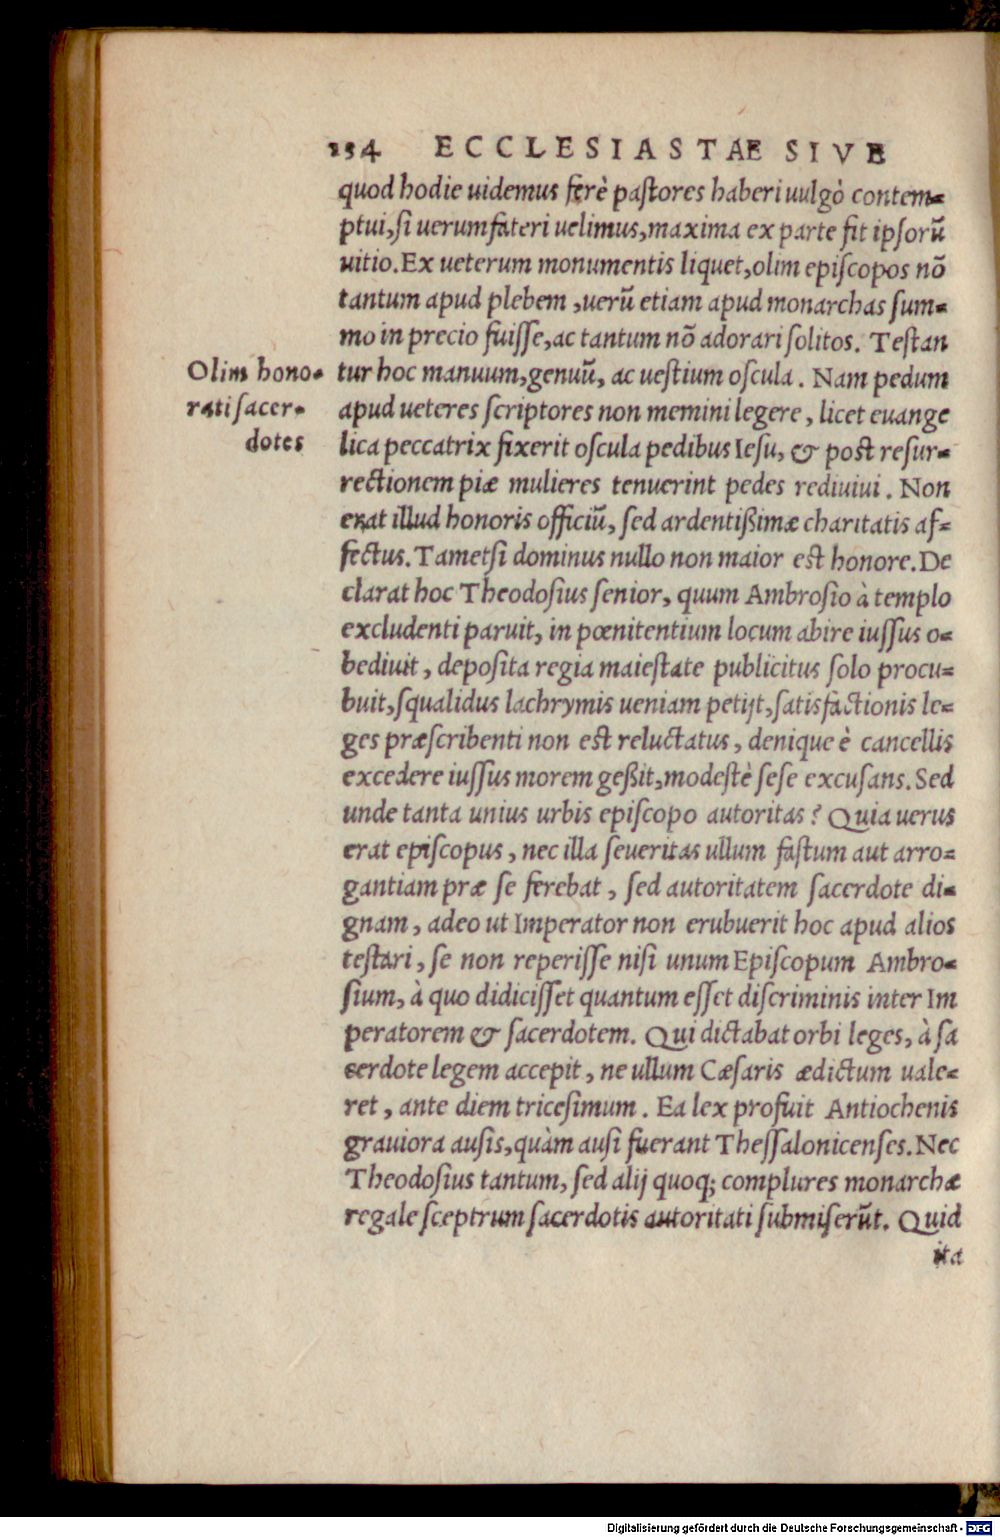 154 ECCLESIASTAE SIVE
quod hodie uidemus ferè pastores haberi uulgò contem-
ptui, si uerum fateri uelimus, maxima ex parte fit ipsorũ
uitio. Ex ueterum monumentis liquet, olim episcopos nõ
tantum apud plebem, uerũ etiam apud monarchas sum-
mo in precio fuisse, ac tantum nõ adorari solitos. Testan
Olim hono-
rati sacer-
dotes
tur hoc manuum, genuũ, ac uestium oscula. Nam pedum
apud ueteres scriptores non memini legere, licet euange
lica peccatrix fixerit oscula pedibus Iesu, & post resur-
rectionem piæ mulieres tenuerint pedes rediuiui. Non
erat illud honoris officiũ, sed ardentißimæ charitatis af-
fectus. Tametsi dominus nullo non maior est honore. De
clarat hoc Theodosius senior, quum Ambrosio à templo
excludenti paruit, in pœnitentium locum abire iussus o-
bediuit, deposita regia maiestate publicitus solo procu-
buit, squalidus lachrymis ueniam petijt, satisfactionis le-
ges præscribenti non est reluctatus, denique è cancellis
excedere iussus morem geßit, modestè sese excusans. Sed
unde tanta unius urbis episcopo autoritas? Quia uerus
erat episcopus, nec illa seueritas ullum fastum aut arro-
gantiam præ se ferebat, sed autoritatem sacerdote di-
gnam, adeo ut Imperator non erubuerit hoc apud alios
testari, se non reperisse nisi unum Episcopum Ambro-
sium, à quo didicisset quantum esset discriminis inter Im
peratorem & sacerdotem. Qui dictabat orbi leges, à sa
cerdote legem accepit, ne ullum Cæsaris ædictum uale-
ret, ante diem tricesimum. Ea lex profuit Antiochenis
grauiora ausis, quàm ausi fuerant Thessalonicenses. Nec
Theodosius tantum, sed alij quoq; complures monarchæ
regale sceptrum sacerdotis autoritati submiserũt. Quid
ita
Digitalisierung gefördert durch die Deutsche Forschungsgemeinschaft - DFG